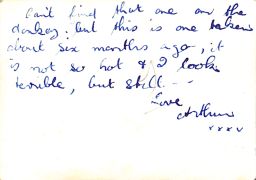 Can't find that one on the
donkey. but this is one taken
about six months ago, it
is not so hot & I look
terrible, but still. --
Love
Arthur
xxxx